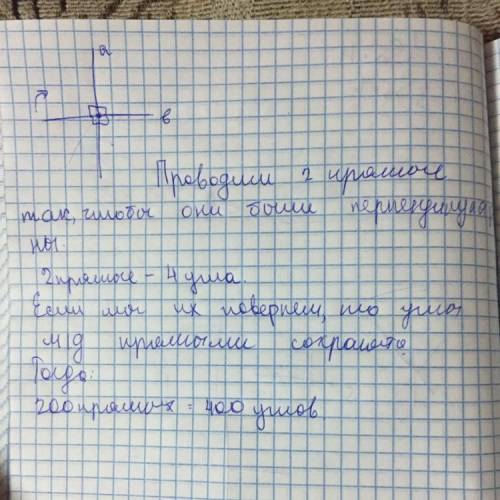 a
в
Проводим 2 прямые
так, чтобы они были перпендикуляр
ны.
2 прямые - 4 угла.
Если мы их повернем, то углы
м/д прямыми сохранятся
Тогда:
200 прямых = 400 углов